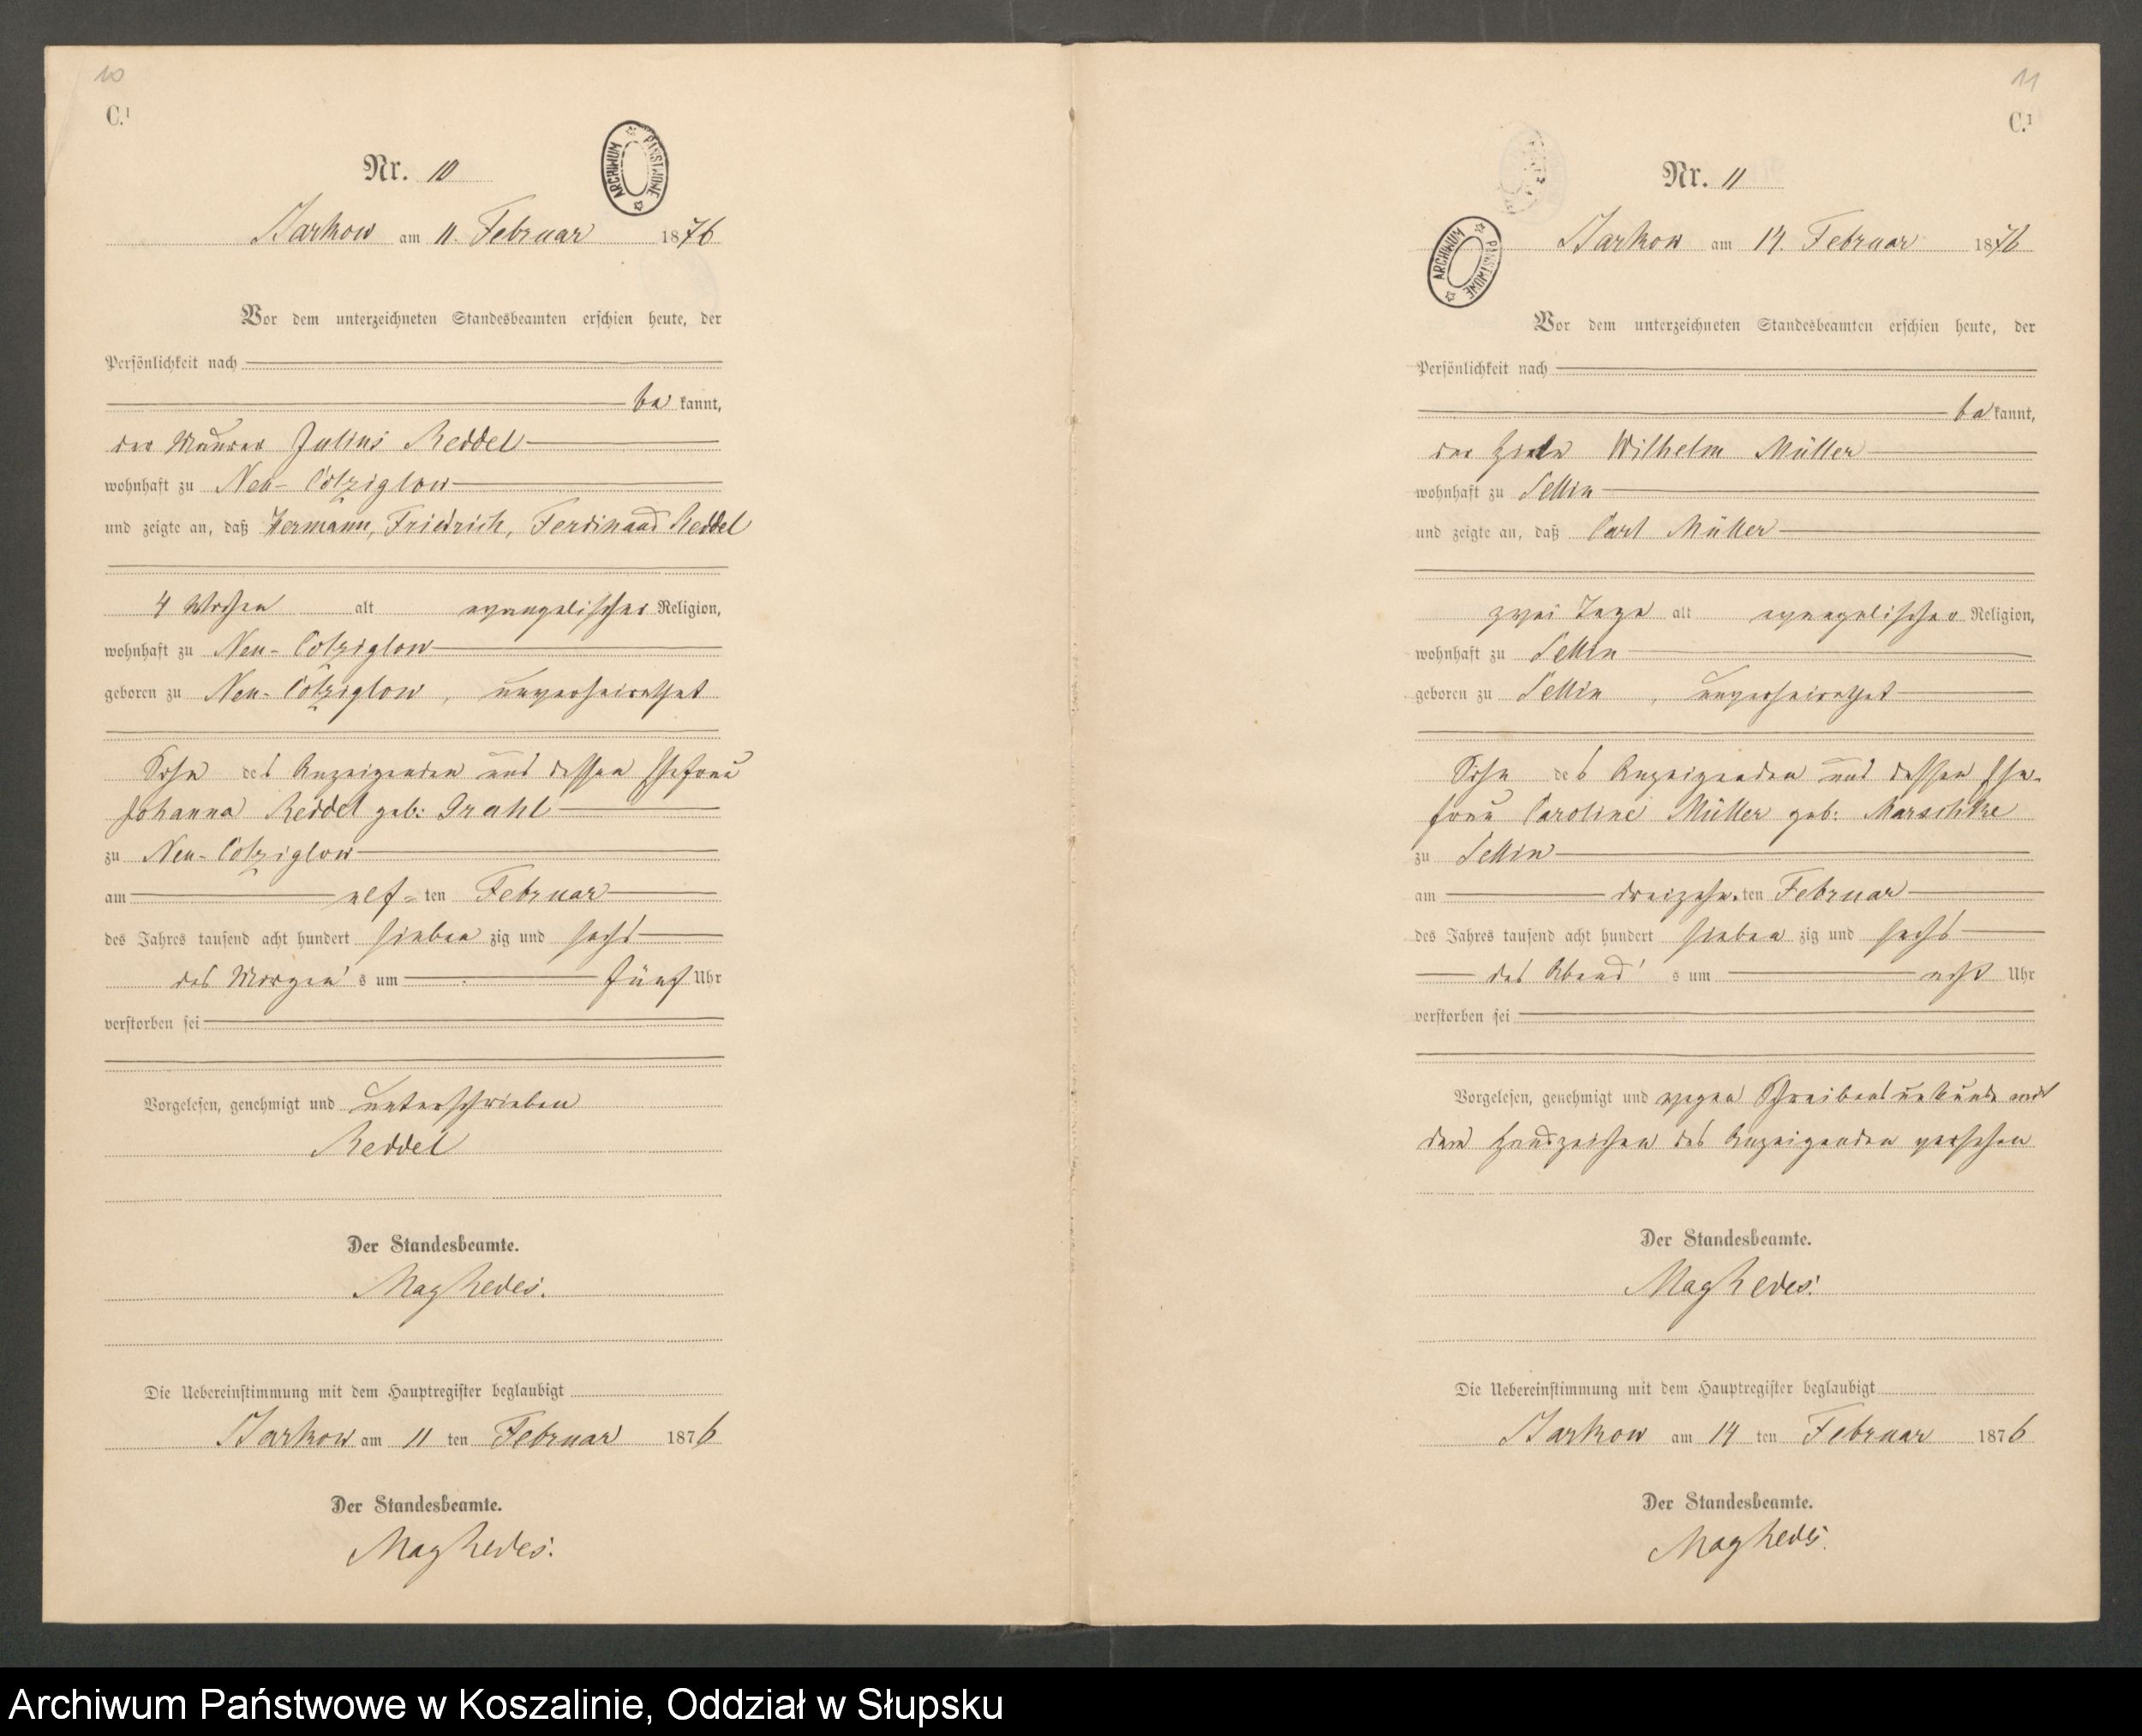 10
C.¹
Nr. 10
ARCHIWUM PAŃSTWOWE
Barkow am 11. Februar 1876
Vor dem unterzeichneten Standesbeamten erschien heute, der
Persönlichkeit nach
be kannt,
der Maurer Julius Reddel
wohnhaft zu Neu-Colziglow
und zeigte an, daß Hermann, Friedrich, Ferdinand Reddel
4 Wochen alt evangelischer Religion,
wohnhaft zu Neu-Colziglow
geboren zu Neu-Colziglow, unverheirathet
Sohn des Anzeigenden und dessen Ehefrau
Johanna Reddel geb: Grahl
zu Neu-Colziglow
am elf=ten Februar
des Jahres tausend acht hundert sieben zig und sechs
des Morgen's um fünf Uhr
verstorben sei
Vorgelesen, genehmigt und unterschrieben
Reddel
Der Standesbeamte.
Die Uebereinstimmung mit dem Hauptregister beglaubigt
Barkow am 11 ten Februar 1876
Der Standesbeamte.
11
C.¹
Nr. 11
ARCHIWUM PAŃSTWOWE
Barkow am 14. Februar 1876
Vor dem unterzeichneten Standesbeamten erschien heute, der
Persönlichkeit nach
be kannt,
der Wilhelm Müller
wohnhaft zu Sellin
und zeigte an, daß Carl Müller
zwei Tage alt evangelischer Religion,
wohnhaft zu Sellin
geboren zu Sellin, unverheirathet
Sohn des Anzeigenden und dessen Ehe-
frau Caroline Müller geb: Marschke
zu Sellin
am dreizehn-ten Februar
des Jahres tausend acht hundert sieben zig und sechs
des Abend's um acht Uhr
verstorben sei
Vorgelesen, genehmigt und wegen Schreibensunkunde mit
dem Handzeichen des Anzeigenden versehen
Der Standesbeamte.
Die Uebereinstimmung mit dem Hauptregister beglaubigt
Barkow am 14 ten Februar 1876
Der Standesbeamte.
Archiwum Państwowe w Koszalinie, Oddział w Słupsku